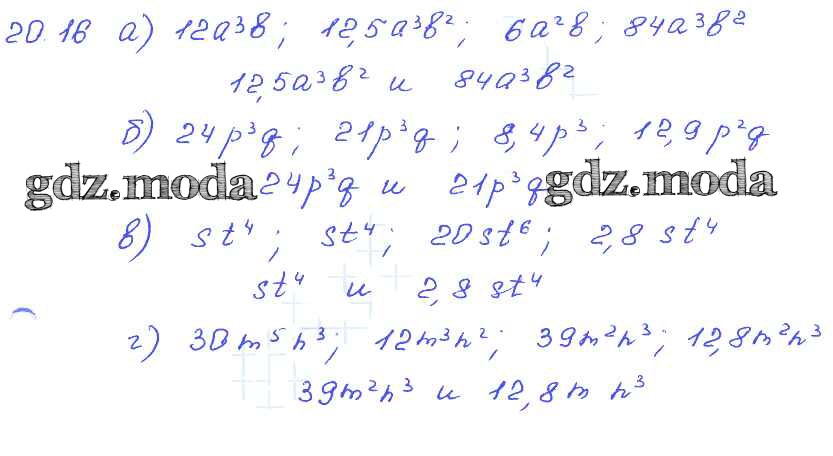 20.16 а) 12a³b; 12,5a³b²; 6a²b; 84a³b²
12,5a³b² и 84a³b²
б) 24p³q; 21p³q; 8,4p³; 12,9p²q
gdz.moda 24p³q и 21p³q gdz.moda
в) st⁴; st⁴; 20st⁶; 2,8 st⁴
st⁴ и 2,8 st⁴
г) 30m⁵n³; 12m³n²; 39m²n³; 12,8m²n³
39m²n³ и 12,8m n³